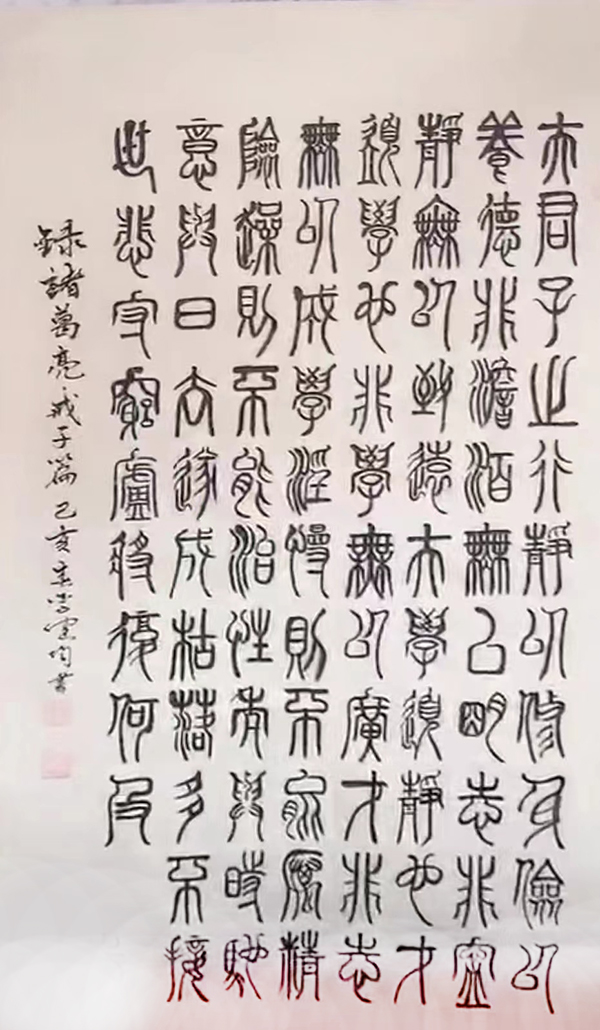 夫君子之行靜以修身儉以
養德非澹泊無以明志非寧
靜無以致遠夫學須靜也才
須學也非學無以廣才非志
無以成學淫慢則不能厲精
險躁則不能治性年與時馳
意與日去遂成枯落多不接
世悲守窮廬將復何及
錄諸葛亮戒子篇己亥書